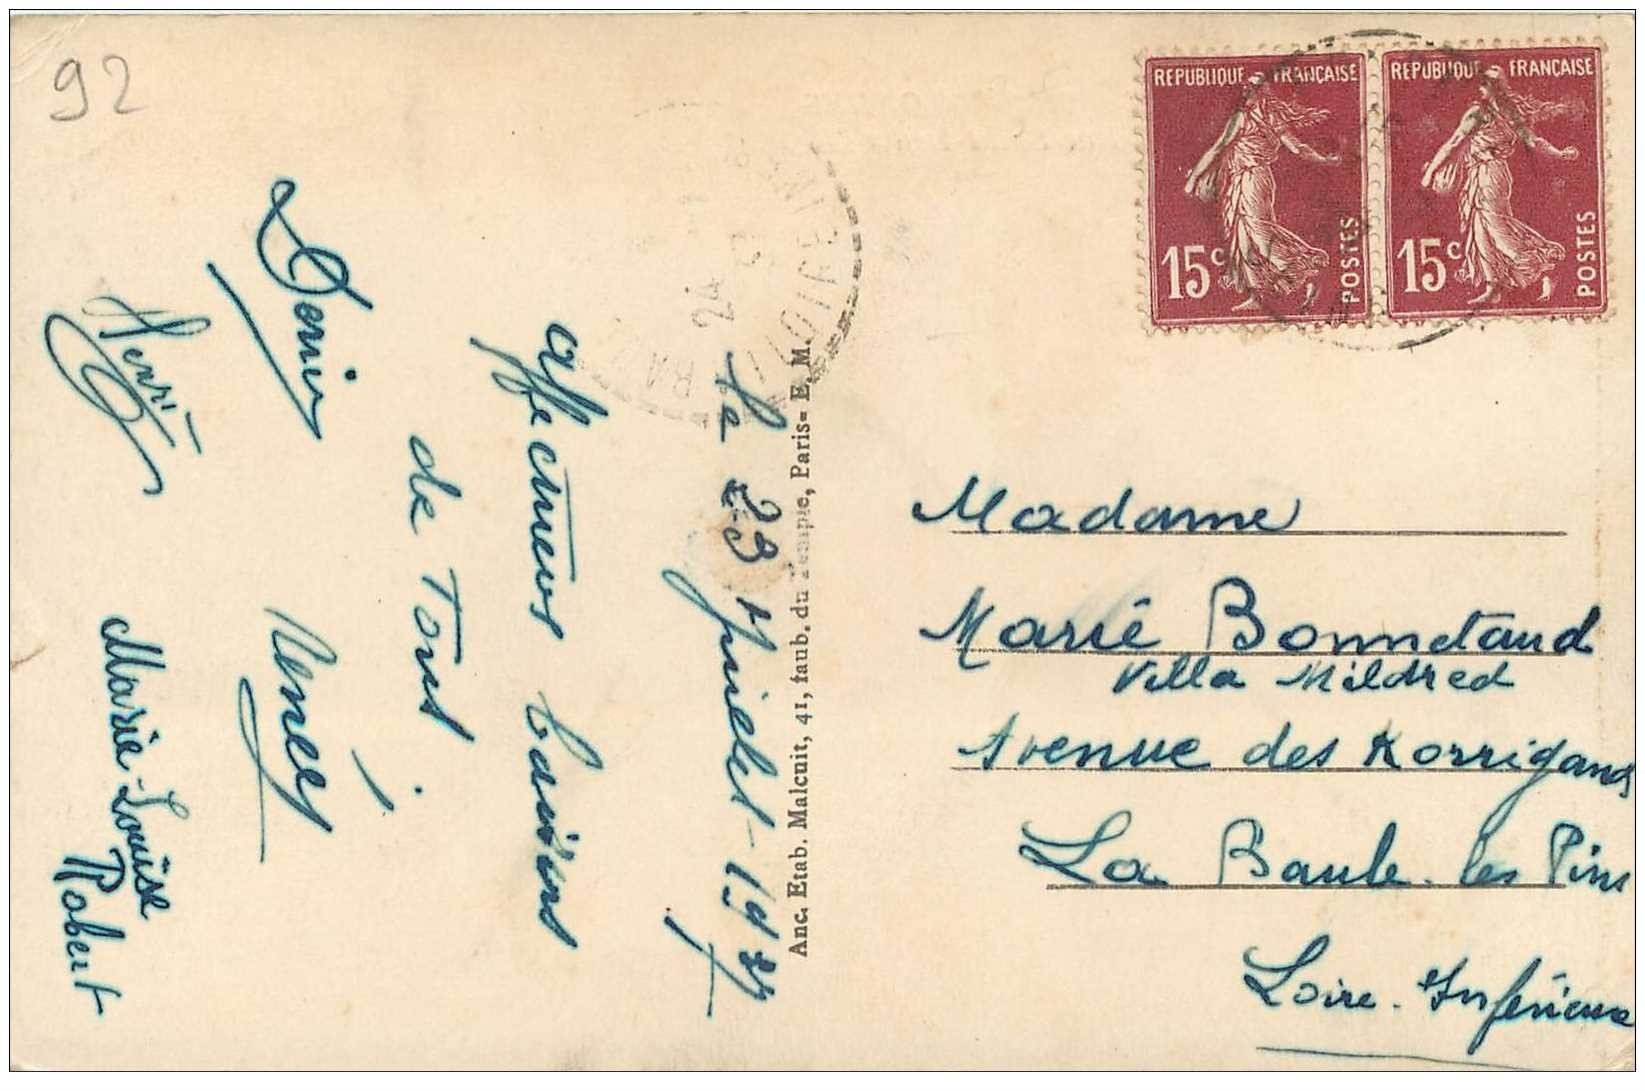 92
REPUBLIQUE FRANÇAISE
15c
POSTES
REPUBLIQUE FRANÇAISE
15c
POSTES
Le 23 Juillet 19
Affectueux baisers
de Tous
Denise
Renée
Henri
Marie-Louise
Robert
Anc. Etab. Malcuit, 41, faub. du Temple, Paris - E. M.
Madame
Marie Bonnetaud
Villa Mildred
Avenue des Korrigans
La Baule-les Pins
Loire-Inférieure